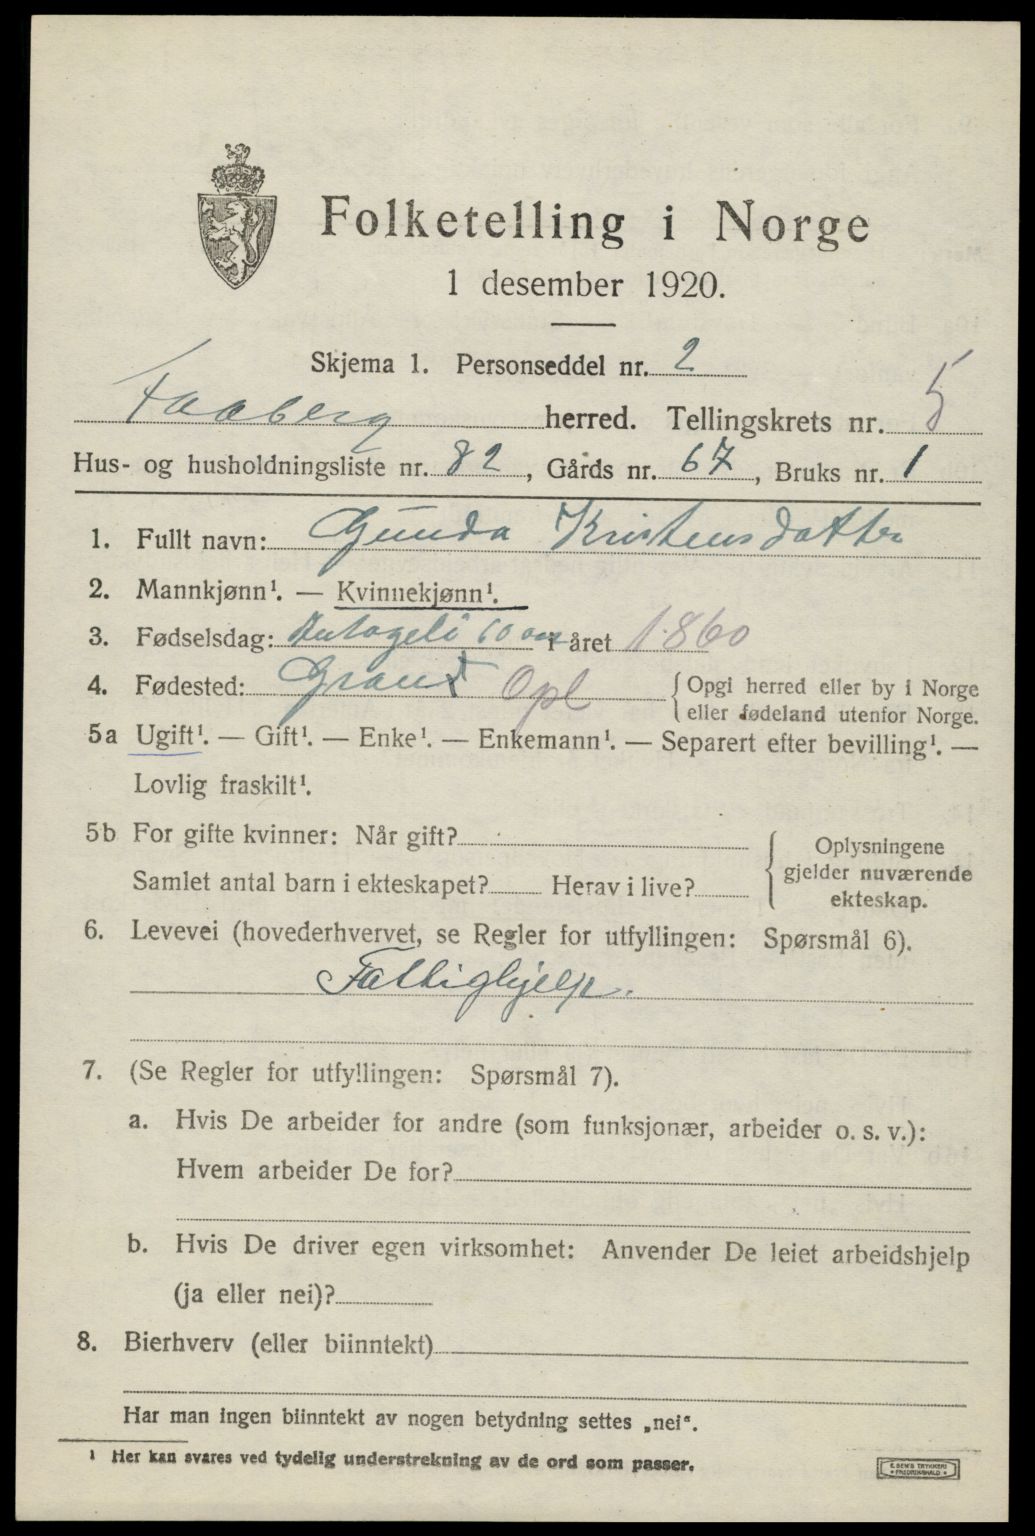 Folketelling i Norge
1 desember 1920.
Skjema 1. Personseddel nr. 2
Faaberg herred. Tellingskrets nr. 5
Hus- og husholdningsliste nr. 82, Gårds nr. 67, Bruks nr. 1
1. Fullt navn: Gunda Kristensdatter
2. Mannkjønn¹. — Kvinnekjønn¹.
3. Fødselsdag: Antageli 60 aar i året 1860
4. Fødested: Opl {Opgi herred eller by i Norge
eller fødeland utenfor Norge.
5a Ugift¹. — Gift¹. — Enke¹. — Enkemann¹. — Separert efter bevilling¹. —
Lovlig fraskilt¹.
5b For gifte kvinner: Når gift?
Samlet antal barn i ekteskapet? Herav i live?
{Oplysningene
gjelder nuværende
ekteskap.
6. Levevei (hovederhvervet, se Regler for utfyllingen: Spørsmål 6).
Fattighjelp.
7. (Se Regler for utfyllingen: Spørsmål 7).
a. Hvis De arbeider for andre (som funksjonær, arbeider o. s. v.):
Hvem arbeider De for?
b. Hvis De driver egen virksomhet: Anvender De leiet arbeidshjelp
(ja eller nei)?
8. Bierhverv (eller biinntekt)
Har man ingen biinntekt av nogen betydning settes „nei“.
¹ Her kan svares ved tydelig understrekning av de ord som passer.
E. SEM'S TRYKKERI
FREDRIKSHALD